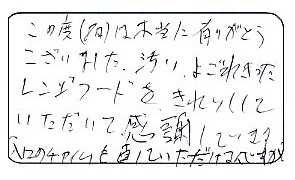 この度(7日)は本当に有りがとう
ございました。汚い、よごれきった
レンジフードを、きれいにして
いただいて感謝しています
入口のチャイムも直していただけるんですか